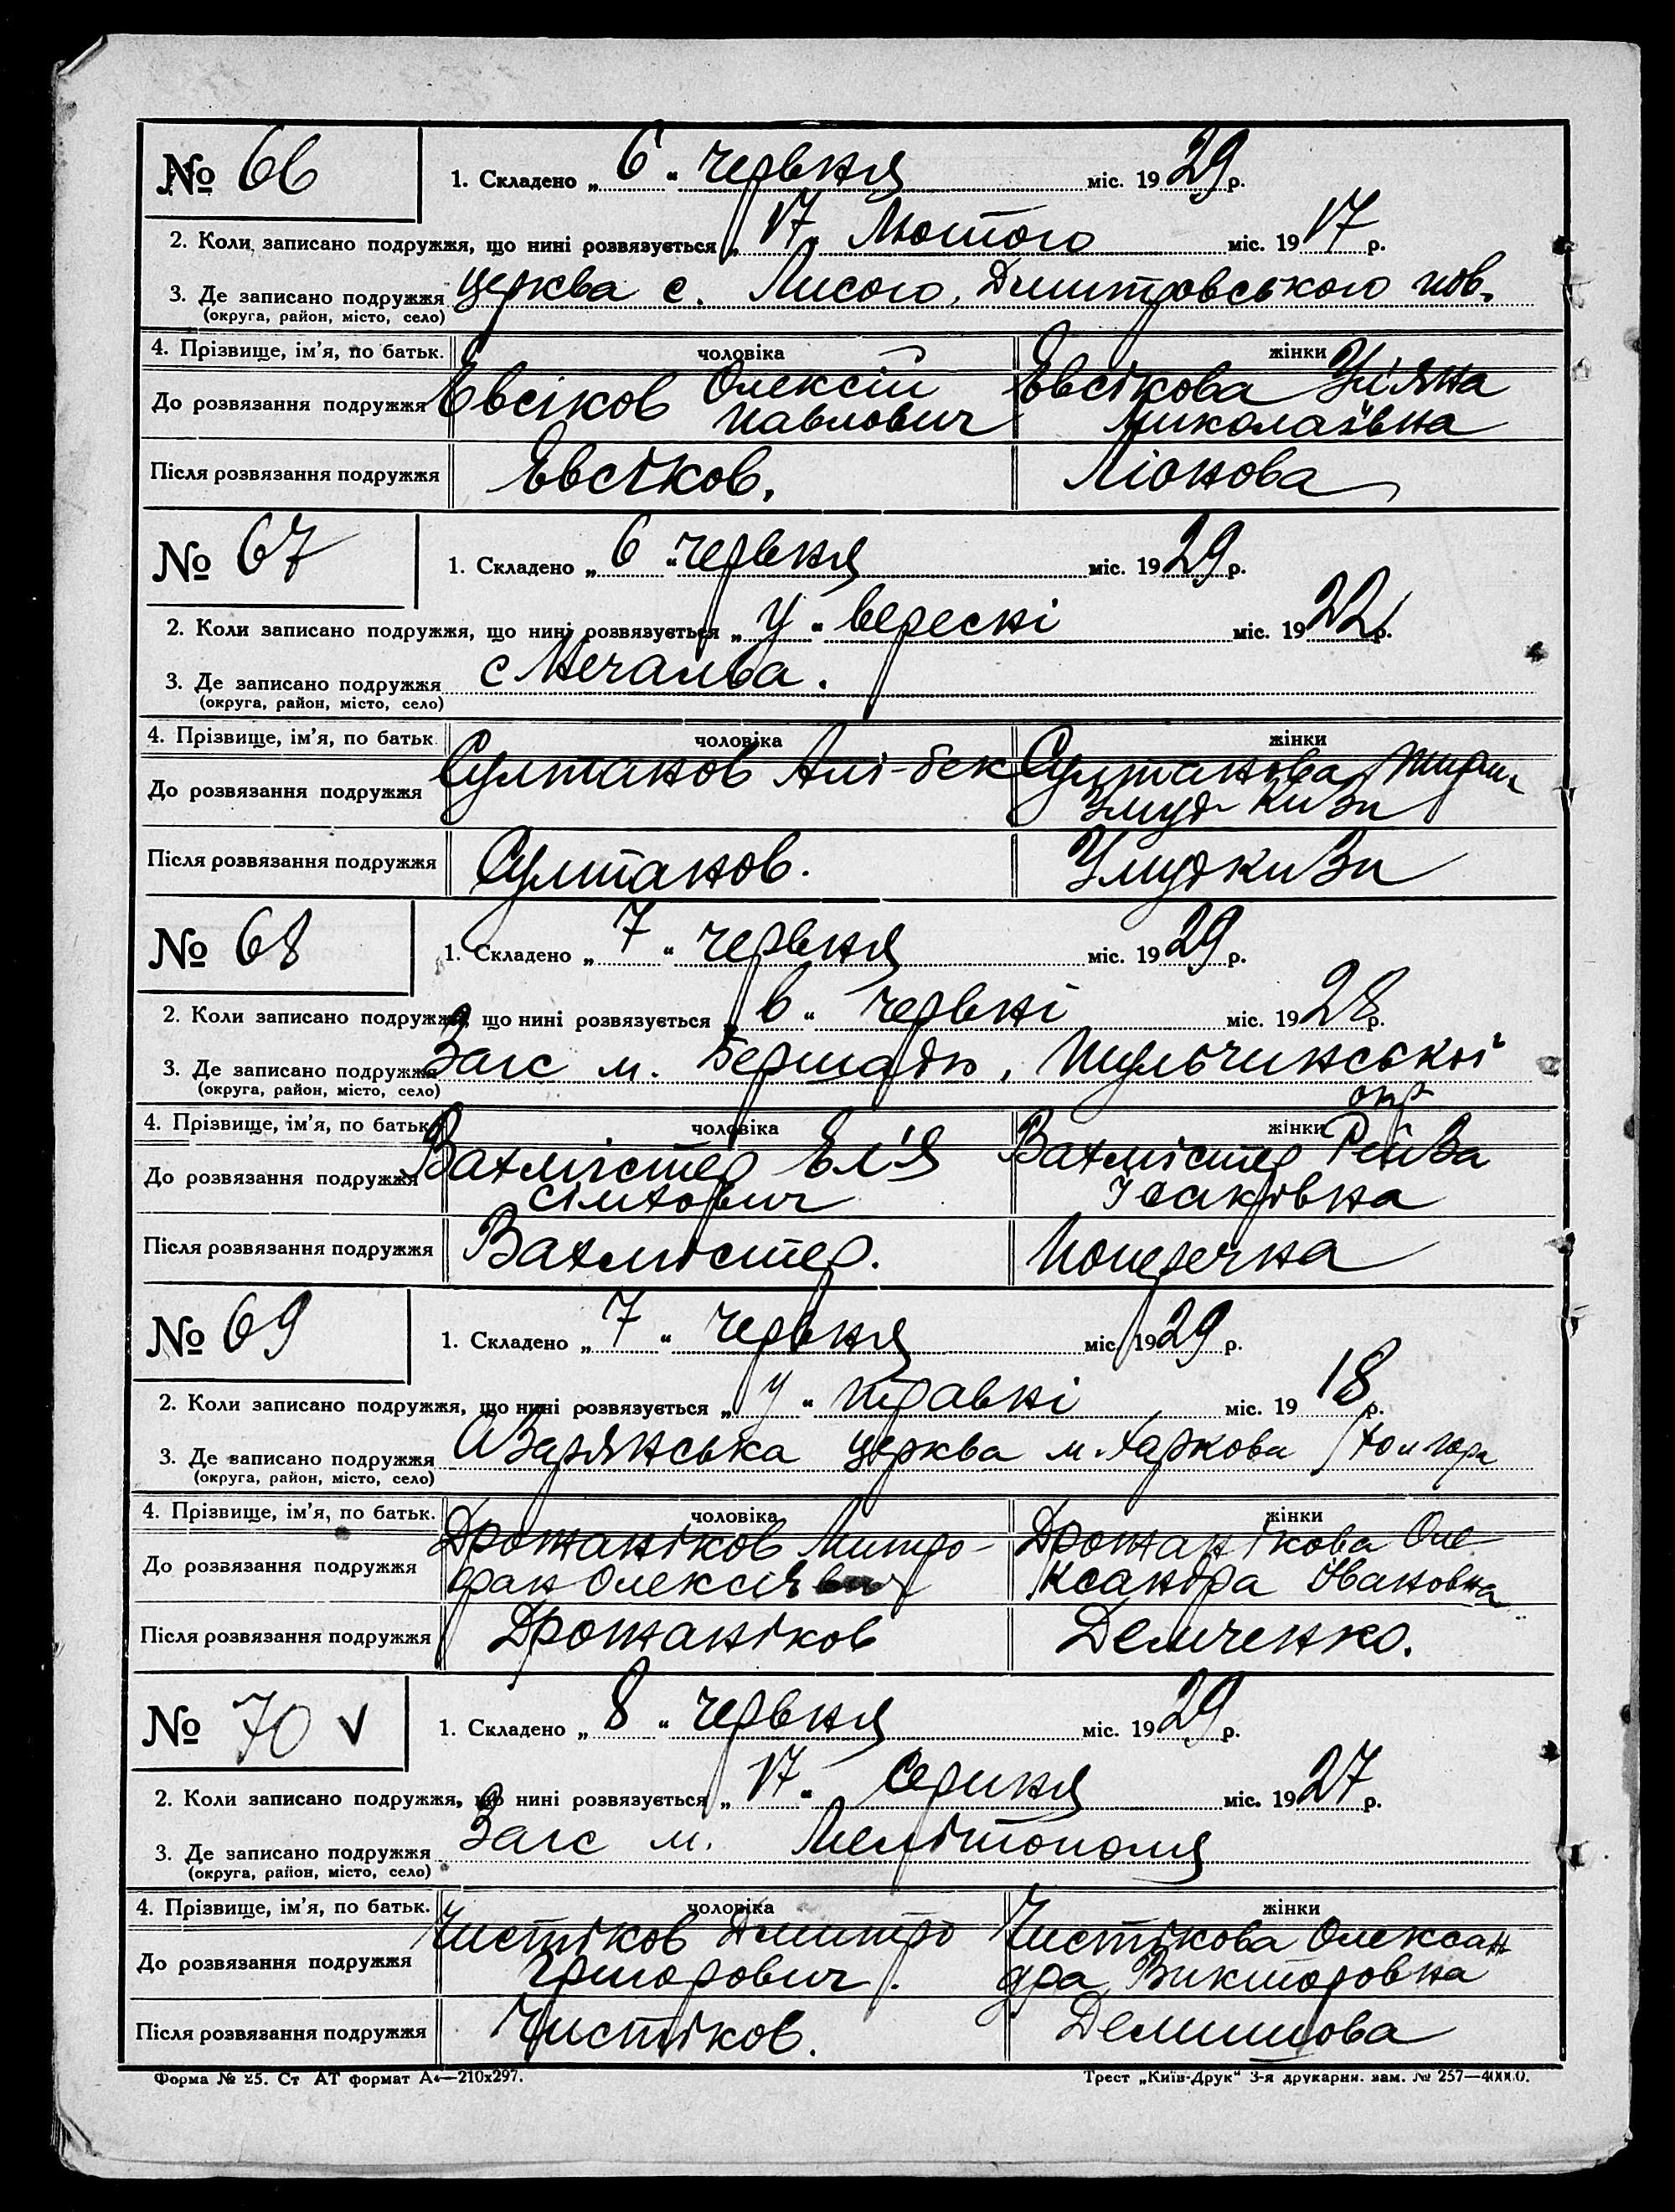 № 66
1. Складено „ 6 “ червня міс. 1929 р.
2. Коли записано подружжя, що нині розвязується „ 17 “ Лютого міс. 1917 р.
3. Де записано подружжя церква с. Лисого, Дмитровського пов.
(округа, район, місто, село)
4. Прізвище, ім’я, по батьк. чоловіка жінки
До розвязання подружжя Евсіков Олексій Павлович Евсікова Уляна Миколаівна
Після розвязання подружжя Евсіков. Ліонова
№ 67
1. Складено „ 6 “ червня міс. 1929 р.
2. Коли записано подружжя, що нині розвязується „ у “ вересні міс. 1922 р.
3. Де записано подружжя с
(округа, район, місто, село)
4. Прізвище, ім’я, по батьк. чоловіка жінки
До розвязання подружжя Султанов Алі-бек Султанова Умуд-Кизи
Після розвязання подружжя Султанов. Умудкизи
№ 68
1. Складено „ 7 “ червня міс. 1929 р.
2. Коли записано подружжя, що нині розвязується „ в “ червні міс. 1928 р.
3. Де записано подружжя Загс м. Бершадю, Тульчинської
(округа, район, місто, село) окр
4. Прізвище, ім’я, по батьк. чоловіка жінки
До розвязання подружжя Вахмістер Ел’я Сімхович Вахмістер Рейза Ісаківна
Після розвязання подружжя Вахмістер. Поперечна
№ 69
1. Складено „ 7 “ червня міс. 1929 р.
2. Коли записано подружжя, що нині розвязується „ у “ травні міс. 1918 р.
3. Де записано подружжя Озарянська церква м. Харкова
(округа, район, місто, село)
4. Прізвище, ім’я, по батьк. чоловіка жінки
До розвязання подружжя Дрожаніков Митро- Дрожанікова Оле
фан Олексієвич ксандра Івановна
Після розвязання подружжя Дрожаніков Демченко.
№ 70 ✓
1. Складено „ 8 “ червня міс. 1929 р.
2. Коли записано подружжя, що нині розвязується „ 17 “ серпня міс. 1927 р.
3. Де записано подружжя Загс м. Мелітополя
(округа, район, місто, село)
4. Прізвище, ім’я, по батьк. чоловіка жінки
До розвязання подружжя Чистіков Дмитро Чистікова Олексан
Григорович. дра Викторовна
Після розвязання подружжя Чистіков.
Форма № 25. Ст АТ формат А4—210х297. Трест „Київ-Друк“ 3-я друкарня. зам. № 257—40000.